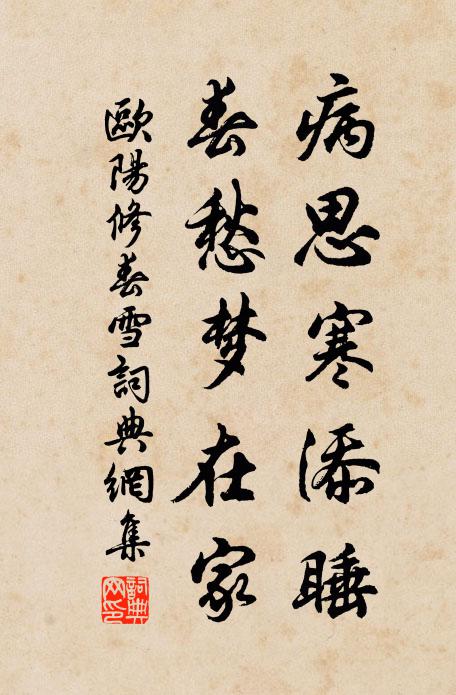 病思寒添睡
春愁梦在家
歐陽修春雪詞典網集
詞典网印